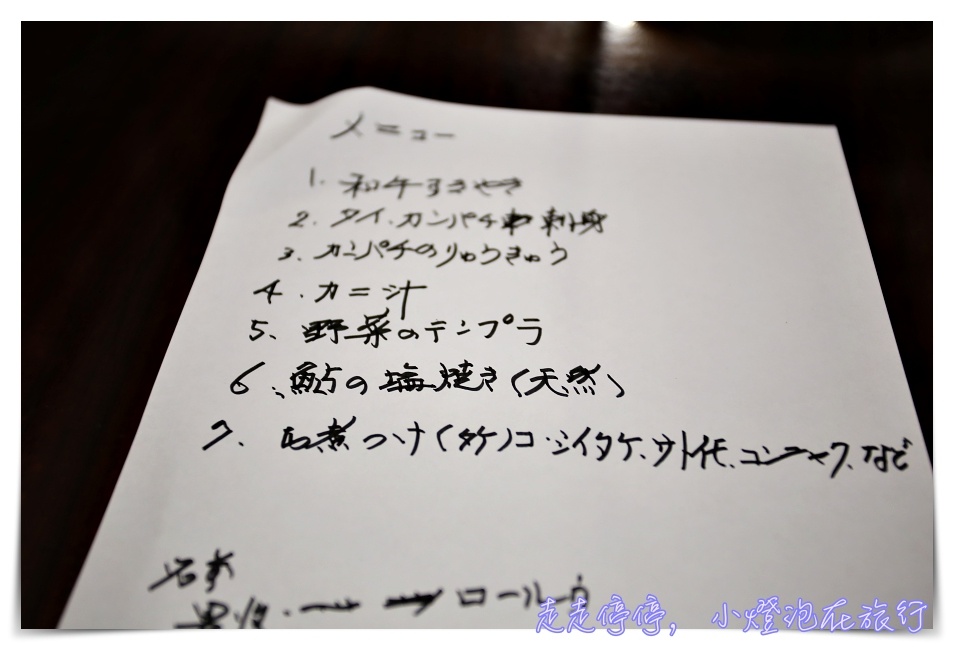 メニュー
1. 和牛すきやき
2. タイ.カンパチ 刺身
3. カンパチのりゅうきゅう
4. カニ汁
5. 野菜のテンプラ
6、鮎の塩焼き(天然)
7. 煮つけ(タケノコ・シイタケ、サトイモ、コンニャク、など
名字
ロール
走走停停，小燈泡在旅行